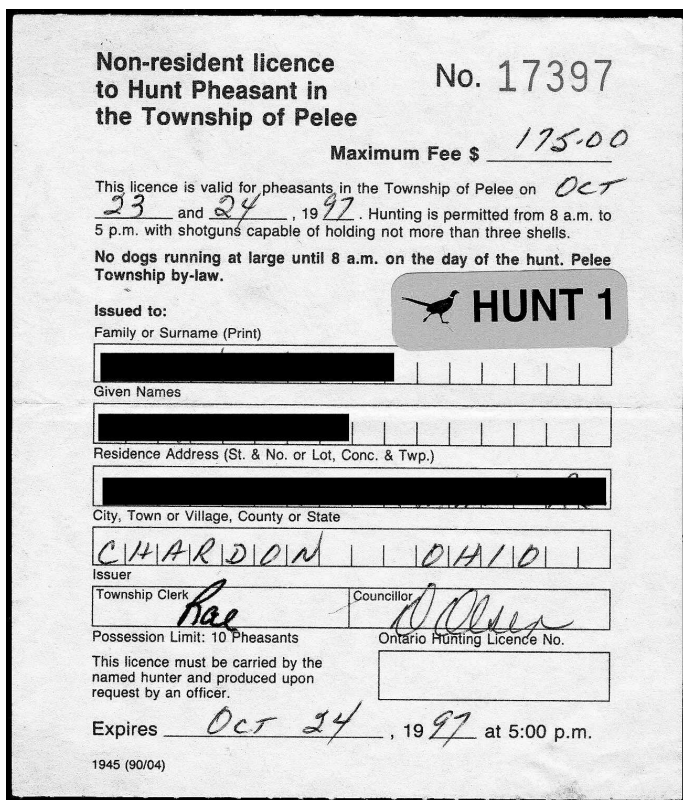 Non-resident licence
to Hunt Pheasant in
the Township of Pelee
No. 17397
Maximum Fee $ 175.00
This licence is valid for pheasants in the Township of Pelee on OCT
23 and 24, 1997. Hunting is permitted from 8 a.m. to
5 p.m. with shotguns capable of holding not more than three shells.
No dogs running at large until 8 a.m. on the day of the hunt. Pelee
Township by-law.
HUNT 1
Issued to:
Family or Surname (Print)
Given Names
Residence Address (St. & No. or Lot, Conc. & Twp.)
City, Town or Village, County or State
CHARDON OHIO
Issuer
Township Clerk Rae
Councillor D Olsen
Possession Limit: 10 Pheasants
Ontario Hunting Licence No.
This licence must be carried by the
named hunter and produced upon
request by an officer.
Expires OCT 24, 1997 at 5:00 p.m.
1945 (90/04)